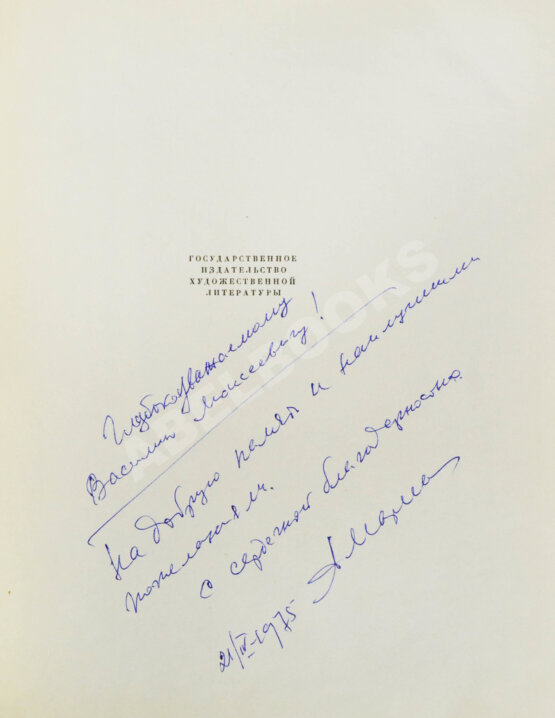 ГОСУДАРСТВЕННОЕ
ИЗДАТЕЛЬСТВО
ХУДОЖЕСТВЕННОЙ
ЛИТЕРАТУРЫ
Глубокоуважаемому
Василию Моисеевичу!
На добрую память и наилучшими
пожеланиям.
с сердечной благодарностью
21/IV-1975
ABELBOOKS